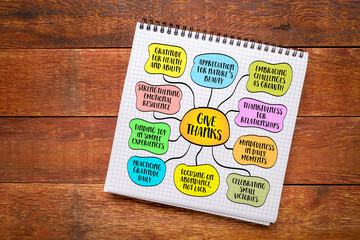 GRATITUDE
FOR HEALTH AND
ABILITY
APPRECIATION
FOR NATURE'S
BEAUTY
EMBRACING
CHALLENGES
AS GROWTH
STRENGTHENING
EMOTIONAL
RESILIENCE
THANKFULNESS
FOR
RELATIONSHIPS
GIVE
THANKS
FINDING JOY
IN SIMPLE
EXPERIENCES
MINDFULNESS
IN DAILY
MOMENTS
PRACTICING
GRATITUDE
DAILY
FOCUSING ON
ABUNDANCE,
NOT LACK
CELEBRATING
SMALL
VICTORIES